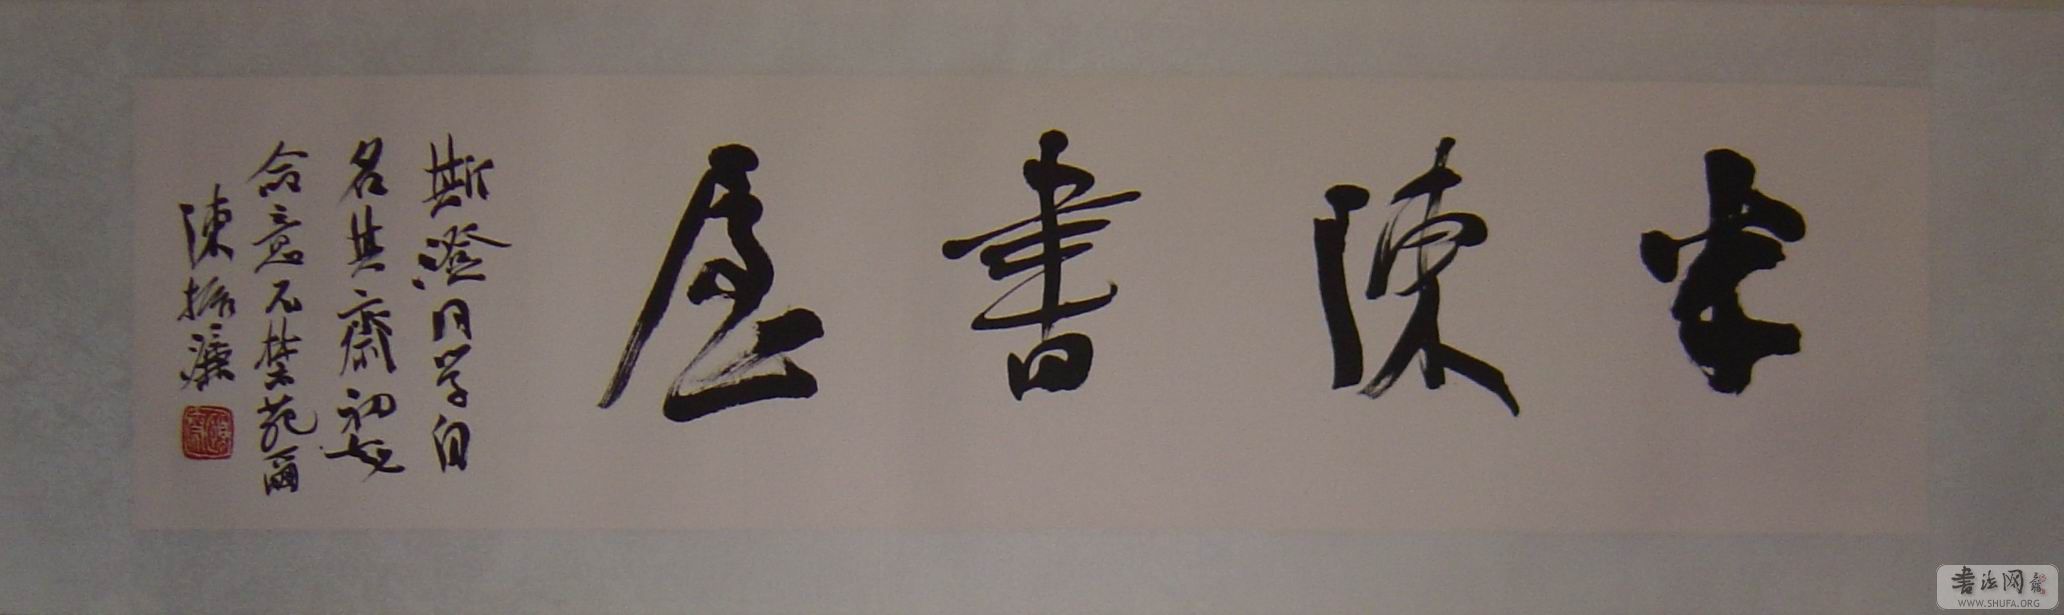 半陳書屋
斯澄同學自
名其齋初見
命意不禁莞爾
陳振濂
書法网
WWW.SHUFA.ORG